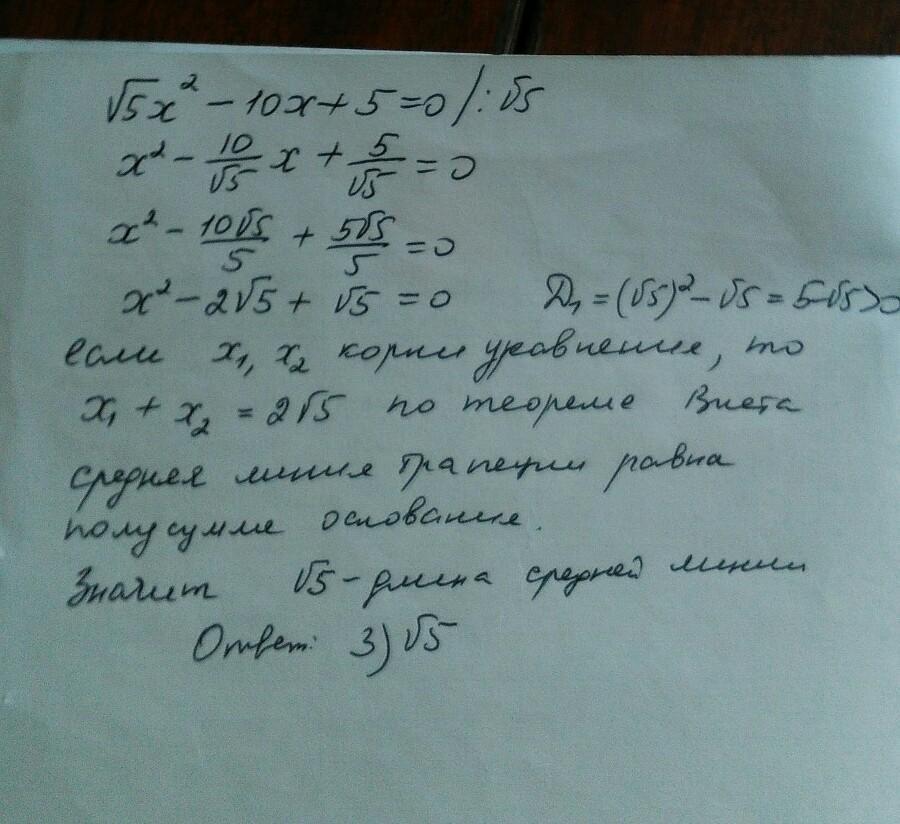 √5x² - 10x + 5 = 0 / : √5
x² - 10/√5 x + 5/√5 = 0
x² - 10√5/5 + 5√5/5 = 0
x² - 2√5 + √5 = 0 D₁ = (√5)² - √5 = 5-√5>0
если x₁, x₂ корни уравнения, то
x₁ + x₂ = 2√5 по теореме Виета
средняя линия трапеции равна
полусумме основания.
Значит √5 - длина средней линии
Ответ: 3) √5